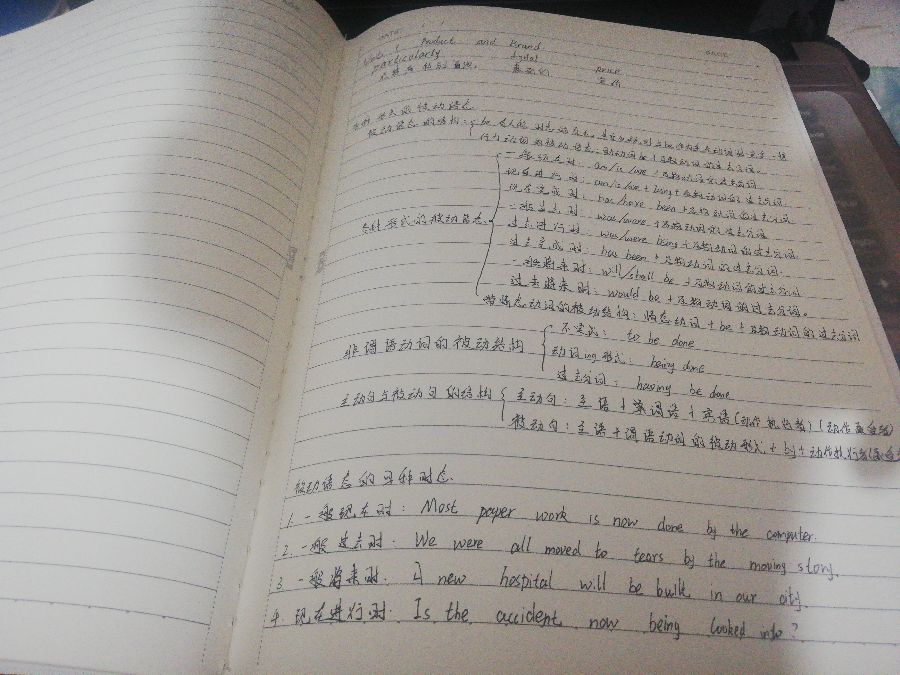 DATE
Product and Brand
particularly
被动语态的结构:
行为动词的被动语态:助动词be+及物动词的过去分词。
各种形式的被动语态
一般现在时: am/is/are+及物动词的过去分词
现在进行时: am/is/are+being+及物动词的过去分词
现在完成时: has/have been+及物动词的过去分词
一般过去时: was/were+及物动词的过去分词
过去进行时: was/were being+及物动词的过去分词
过去完成时: has been+及物动词的过去分词
一般将来时: will/shall be+及物动词的过去分词
过去将来时: would be+及物动词的过去分词。
带情态动词的被动结构: 情态动词+be+及物动词的过去分词
非谓语动词的被动结构
不定式: to be done
动词ing形式: being done
过去分词: having be done
主动句与被动句的结构
主动句: 主语+谓语+宾语(动作执行者)(动作承受者)
被动句: 主语+谓语动词的被动形式+by+动作执行者
被动语态的四种时态
1. 一般现在时: Most paper work is now done by the computer.
2. 一般过去时: We were all moved to tears by the moving story.
3 一般将来时. A new hospital will be built in our city
4 现在进行时: Is the accident now being looked into?